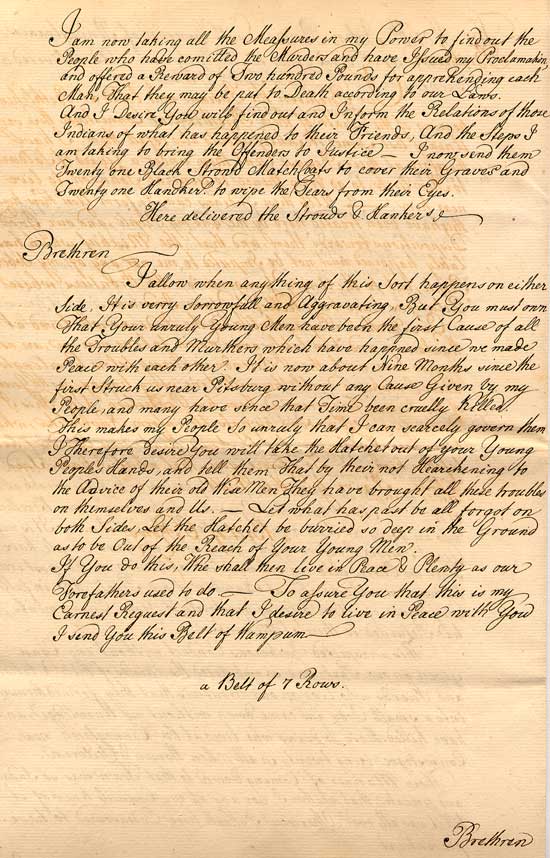 I am now taking all the Meassures in my Power to find out the
People who have comitted the Murders and have Issued my Proclamation,
and offered a Reward of Two hundred Pounds for apprehending each
Man, That they may be put to Death according to our Laws.
And I Desire You will find out and Inform the Relations of those
Indians of what has happened to their Friends, And the Steps I
am taking to bring the Offenders to Justice — I now send them
Twenty one Black Stroud Match Coats to cover their Graves and
Twenty one Handker.s to wipe the Tears from their Eyes.
Here delivered the Strouds & Hankers
Brethren
I allow when any thing of this Sort happens on either
Side. It is verry Sorrowfull and Aggravating, But You must own
That Your unruly Young Men have been the first Cause of all
the Troubles and Murthers which have happned since we made
Peace with each other. It is now about Nine Months since the
first Struck us near Pitsburg without any Cause Given by my
People, and many have since that Time been cruelly Killed.
This makes my People so unruly that I can scarcely govern them
I Therefore desire You will take the Hatchet out of your Young
People's Hands, and tell them That by their not Hearckening to
the Advice of their old Wise Men They have brought all these troubles
on themselves and Us. — Let what has past be all forgot on
both Sides, Let the Hatchet be burried so deep in the Ground
as to be Out of the Reach of Your Young Men.
If You do this, We shall then live in Peace & Plenty as our
Forefathers used to do — To assure You that this is my
Earnest Request and that I desire to live in Peace with You
I send You this Belt of Wampum —
a Belt of 7 Rows.
Brethren